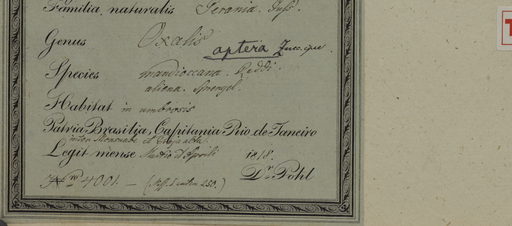 Familia naturalis Gerania. Juss.
Genus Oxalis
aptera Zucc.
Species mandioccana. Reddi
aliena Sprengel.
Habitat in umbrosis
Patria Brasilia, Capitania Rio de Janeiro
inter
Legit mense 1818.
Dr. Pohl
4001. —
T